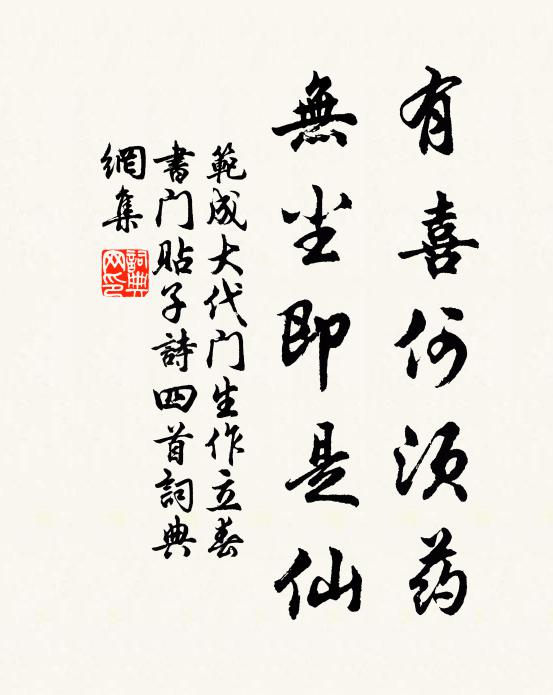 有喜何须药
無尘即是仙
範成大代门生作立春
書门貼子詩四首詞典
網集
詞典
网印